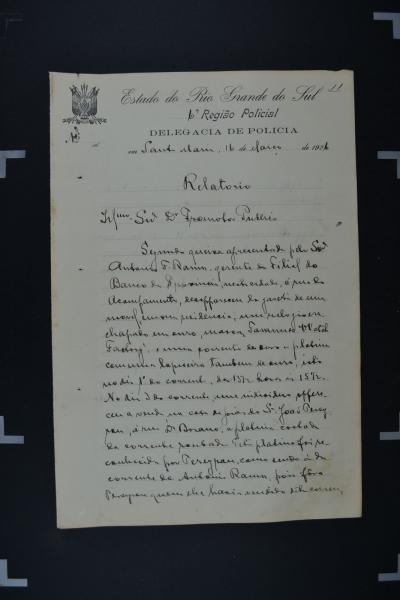 11
Estado do Rio Grande do Sul
6ª Região Policial
DELEGACIA DE POLICIA
Nº
em Santa Maria, 16 de Março de 1926
Relatorio
Illmo. Snr. Dr. Promotor Publico
Segundo queixa apresentada pelo Snr.
Antonio F. Ramos, gerente da Filial do
Banco da Provincia, nesta cidade, á rua do
Acampamento, desappareceu da gaveta de um
movel em sua residencia, um relogio
chapeado em ouro, marca
e uma corrente de ouro e platina
com uma lapiseira tambem de ouro, isto
no dia 1º do corrente, das 13½ horas ás 15½.
No dia 3 do corrente um individuo offere-
ceu á venda na casa de joias do Sr. João Perey-
ron, á rua Dr. Bozano, a platina cortada
da corrente roubada. Esta platina foi re-
conhecida por Pereyron, como sendo a da
corrente de Antonio Ramos, pois fôra
Pereyron quem lhe havia vendido dita corren-